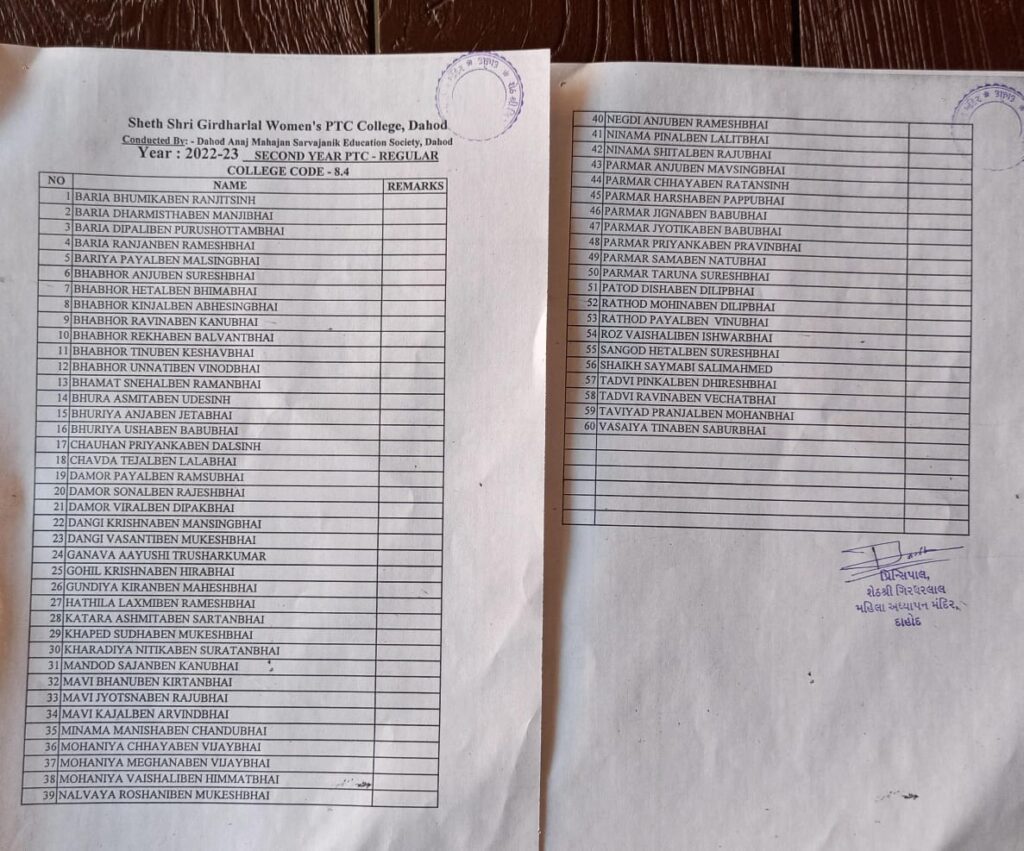 Sheth Shri Girdharlal Women's PTC College, Dahod
Conducted By: - Dahod Anaj Mahajan Sarvajanik Education Society, Dahod
Year : 2022-23 SECOND YEAR PTC - REGULAR
COLLEGE CODE - 8.4
NO NAME REMARKS
1 BARIA BHUMIKABEN RANJITSINH
2 BARIA DHARMISTHABEN MANJIBHAI
3 BARIA DIPALIBEN PURUSHOTTAMBHAI
4 BARIA RANJANBEN RAMESHBHAI
5 BARIYA PAYALBEN MALSINGBHAI
6 BHABHOR ANJUBEN SURESHBHAI
7 BHABHOR HETALBEN BHIMABHAI
8 BHABHOR KINJALBEN ABHESINGBHAI
9 BHABHOR RAVINABEN KANUBHAI
10 BHABHOR REKHABEN BALVANTBHAI
11 BHABHOR TINUBEN KESHAVBHAI
12 BHABHOR UNNATIBEN VINODBHAI
13 BHAMAT SNEHALBEN RAMANBHAI
14 BHURA ASMITABEN UDESINH
15 BHURIYA ANJABEN JETABHAI
16 BHURIYA USHABEN BABUBHAI
17 CHAUHAN PRIYANKABEN DALSINH
18 CHAVDA TEJALBEN LALABHAI
19 DAMOR PAYALBEN RAMSUBHAI
20 DAMOR SONALBEN RAJESHBHAI
21 DAMOR VIRALBEN DIPAKBHAI
22 DANGI KRISHNABEN MANSINGBHAI
23 DANGI VASANTIBEN MUKESHBHAI
24 GANAVA AAYUSHI TRUSHARKUMAR
25 GOHIL KRISHNABEN HIRABHAI
26 GUNDIYA KIRANBEN MAHESHBHAI
27 HATHILA LAXMIBEN RAMESHBHAI
28 KATARA ASHMITABEN SARTANBHAI
29 KHAPED SUDHABEN MUKESHBHAI
30 KHARADIYA NITIKABEN SURATANBHAI
31 MANDOD SAJANBEN KANUBHAI
32 MAVI BHANUBEN KIRTANBHAI
33 MAVI JYOTSNABEN RAJUBHAI
34 MAVI KAJALBEN ARVINDBHAI
35 MINAMA MANISHABEN CHANDUBHAI
36 MOHANIYA CHHAYABEN VIJAYBHAI
37 MOHANIYA MEGHANABEN VIJAYBHAI
38 MOHANIYA VAISHALIBEN HIMMATBHAI
39 NALVAYA ROSHANIBEN MUKESHBHAI
40 NEGDI ANJUBEN RAMESHBHAI
41 NINAMA PINALBEN LALITBHAI
42 NINAMA SHITALBEN RAJUBHAI
43 PARMAR ANJUBEN MAVSINGBHAI
44 PARMAR CHHAYABEN RATANSINH
45 PARMAR HARSHABEN PAPPUBHAI
46 PARMAR JIGNABEN BABUBHAI
47 PARMAR JYOTIKABEN BABUBHAI
48 PARMAR PRIYANKABEN PRAVINBHAI
49 PARMAR SAMABEN NATUBHAI
50 PARMAR TARUNA SURESHBHAI
51 PATOD DISHABEN DILIPBHAI
52 RATHOD MOHINABEN DILIPBHAI
53 RATHOD PAYALBEN VINUBHAI
54 ROZ VAISHALIBEN ISHWARBHAI
55 SANGOD HETALBEN SURESHBHAI
56 SHAIKH SAYMABI SALIMAHMED
57 TADVI PINKALBEN DHIRESHBHAI
58 TADVI RAVINABEN VECHATBHAI
59 TAVIYAD PRANJALBEN MOHANBHAI
60 VASAIYA TINABEN SABURBHAI
પ્રિન્સિપાલ,
શેઠશ્રી ગિરધરલાલ
મહિલા અધ્યાપન મંદિર,
દાહોદ